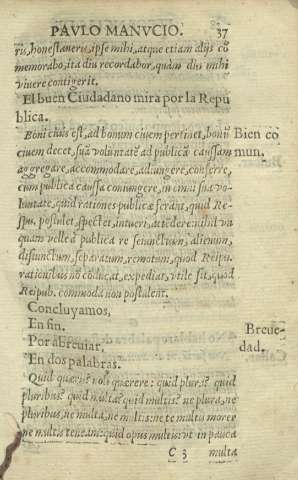 PAVLO MANVCIO. 37
ris, honestaueris, ipse mihi, atque etiam alijs cō
memorabo, ita diu recordabor, quàm diu mihi
viuere contigerit.
El buen Ciudadano mira por la Repu
blica.
Boni ciuis est, ad bonum ciuem pertinet, bonū
Bien co
ciuem decet, suā voluntatē ad publicā caussam
mun.
aggregare, accommodare, adiungere, conferre,
cum publica caussa coniungere, in omni sua vo-
luntate, quid rationes publicæ ferant, quid Re-
spu. postulet, spectet, intueri, attēdere: nihil vn
quam velle à publica re seiunctum, alienum,
disiunctum, separatum, remotum, quod Reipu.
rationibus nō cōducat, expediat, vtile sit, quod
Reipub. commoda non postulent.
Concluyamos,
En fin.
Breue-
Por abreuiar.
dad.
En dos palabras.
Quid quæris? noli quærere: quid pluris? quid
pluribus? quid multa? quid multis? ne plura, ne
pluribus, ne multa, ne multis: ne te multu morer
ne multis teneam: quid opus multis? vt in pauca
C 3 multa